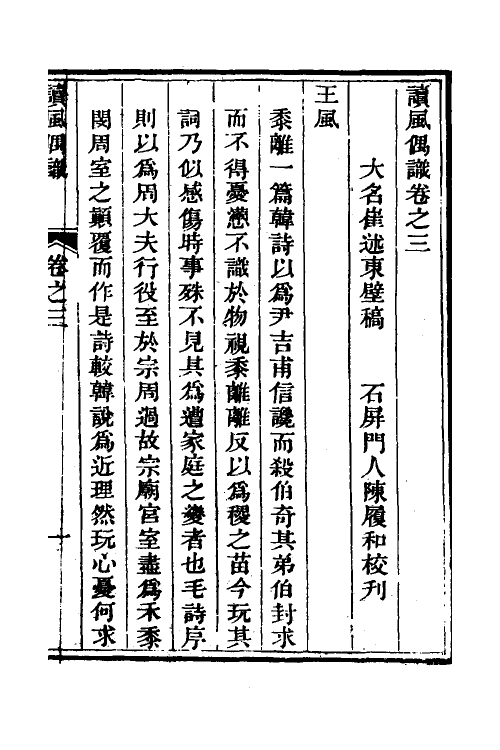 讀風偶識卷之三
大名崔述東壁稿　石屏門人陳履和校刋
王風
黍離一篇韓詩以爲尹吉甫信讒而殺伯奇其弟伯封求
而不得憂懣不識於物視黍離離反以爲稷之苗今玩其
詞乃似感傷時事殊不見其爲遭家庭之變者也毛詩序
則以爲周大夫行役至於宗周過故宗廟宫室盡爲禾黍
閔周室之顛覆而作是詩較韓說爲近理然玩心憂何求
讀風偶識　卷之三　一